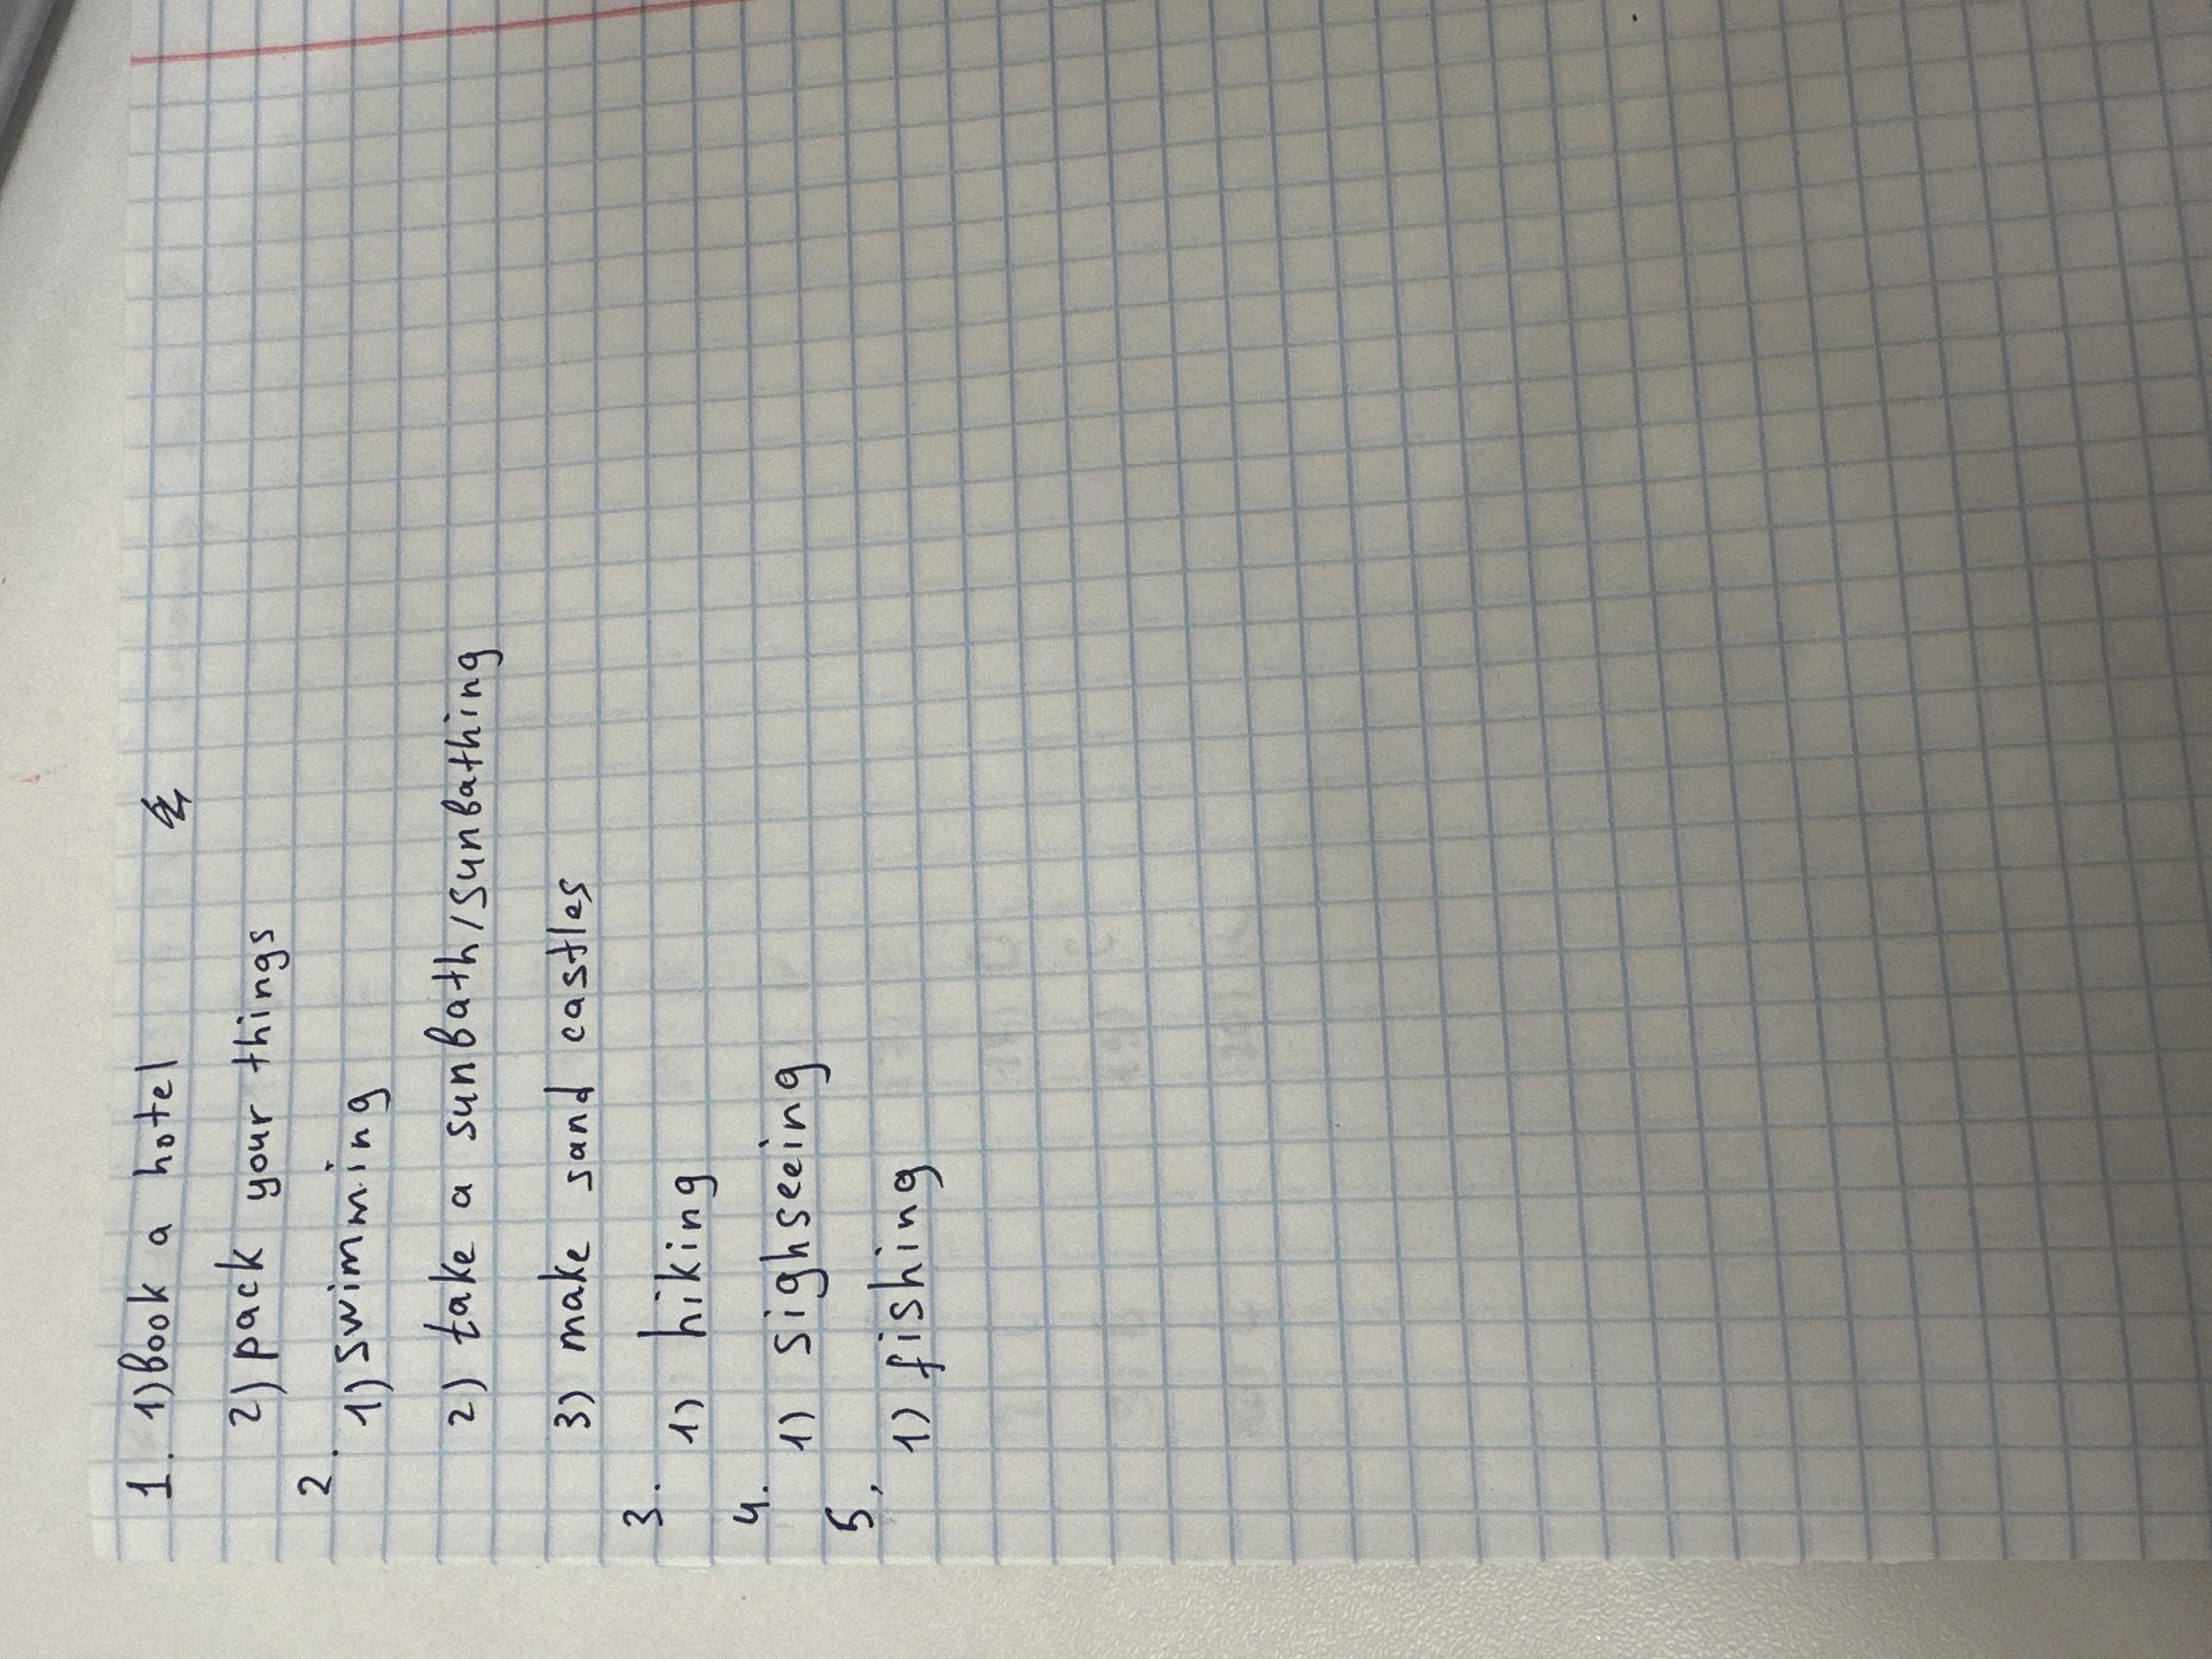 1. 1) book a hotel
2) pack your things
2.
1) swimming
2) take a sunbath/sunbathing
3) make sand castles
3.
1) hiking
4.
1) sighseeing
5.
1) fishing